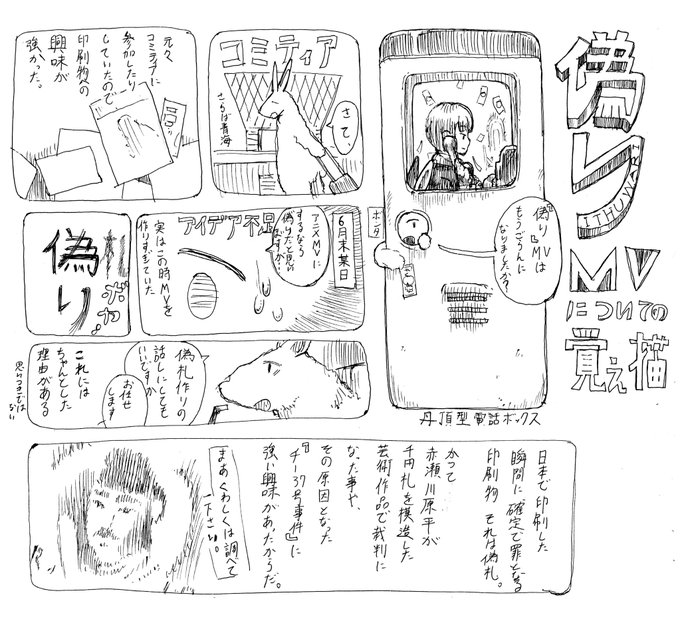 偽り
ITHUWARI
MV
についての
覚え描
『偽り』MVは
もうごらんに
なりましたか?
ボタ
丹頂型電話ボックス
コミティア
さて、
さらば青海
元々
コミティアに
参加したり
していたので
印刷物への
興味が
強かった。
6月末某日
アニメMVに
するなら
偽りだと思い
ますが
アイデア不足
実はこの時MVを
作りすぎていた
札
ボカッ
偽り
偽札作りの
話しにしても
いいですか
お任せ
します
これには
ちゃんとした
理由がある
思いつきでは
ない
日本で印刷した
瞬間に確定で罪となる
印刷物 それは偽札。
かつて
赤瀬川原平が
千円札を模造した
芸術作品で裁判に
なった事や、
その原因となった
『チー37号事件』に
強い興味があったからだ。
まあくわしくは調べて
下さい。